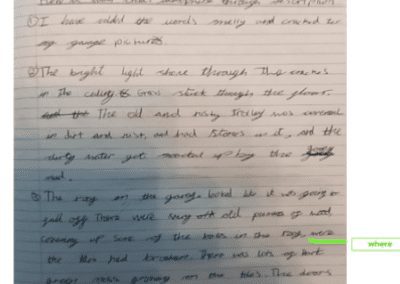 I have added the words smelly and cracked to
my garage pictures
The bright light shone through the cracks
in the ceiling & Grass stuck through the floor.
The old and rusty Trolley was covered
in dirt and rust, and had stones in it, and the
dirty water got soaked up by the
mud.
The roof on the garage looked like it was going to
fall off There were very old pieces of wood
covering up some of the holes in the roof were
where
the tiles had Broken There was lots of
green moss growing on the tiles. The doors